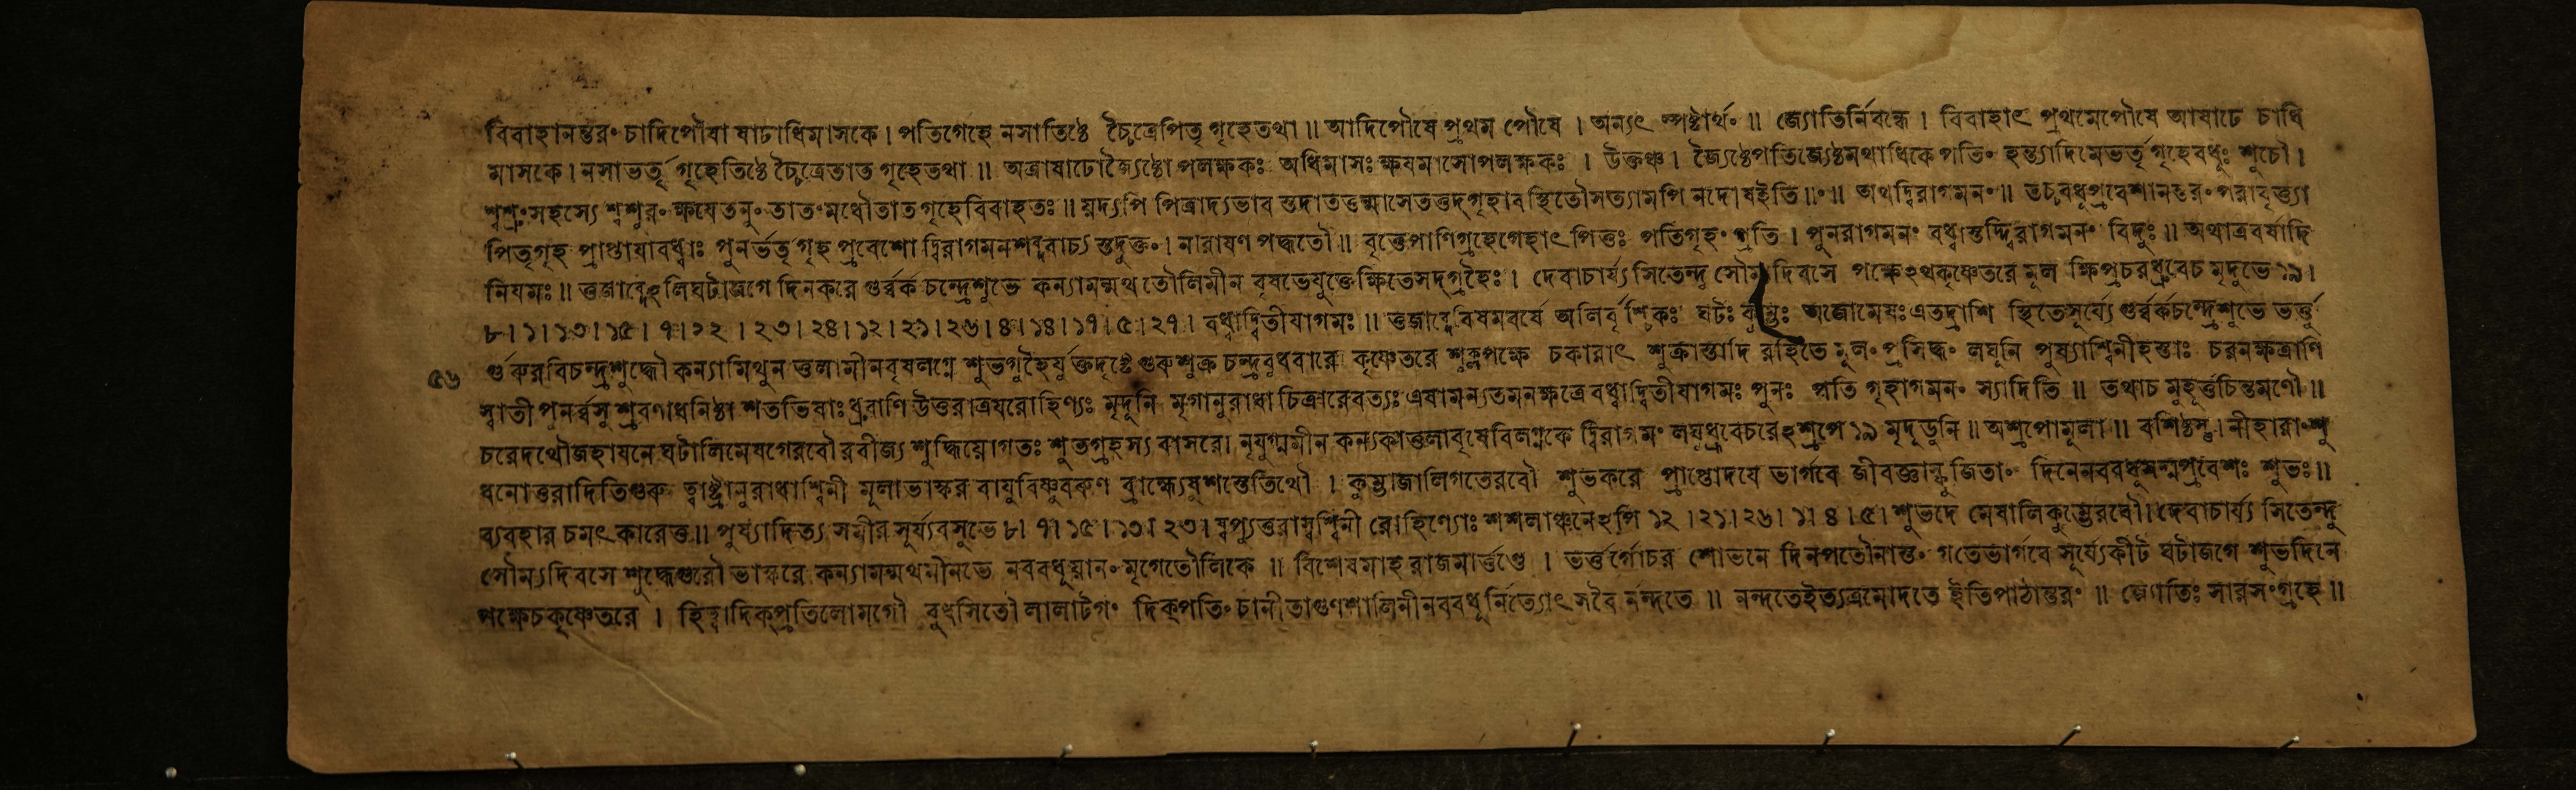 বিবাহানন্তরং চাদিপৌষাষাঢাধিমাসকে। পতিগেহে নসাতিষ্ঠে চ্চৈত্রেপিতৃগৃহেতথা॥ আদিপৌষে প্রথম পৌষে। অন্যৎ স্পষ্টার্থং॥ জ্যোতির্নিবন্ধে। বিবাহাৎ প্রথমেপৌষে আষাঢে চাধি
মাসকে। নসাভর্তৃ গৃহেতিষ্ঠে চ্চৈত্রেতাত গৃহেতথা॥ অত্রাষাঢোজ্যৈষ্ঠোপলক্ষকঃ অধিমাসঃ ক্ষযমাসোপলক্ষকঃ। উক্তঞ্চ। জ্যৈষ্ঠেপতিজ্যেষ্ঠমথাধিকে পতিং হন্ত্যাদিমেভর্তৃগৃহেবধুঃ শুচৌ।
শ্বশ্রুংসহস্যে শ্বশুরং ক্ষযেতনুং তাতংমধৌতাত গৃহেবিবাহতঃ॥ য়দ্যপি পিত্রাদ্যভাব স্তদাতত্তন্মাসেতত্তদ্গৃহাবস্থিতৌসত্যামপি নদোষইতি॥০॥ অথদ্বিরাগমনং॥ তচ্চবধূপ্রবেশানন্তরং পরাবৃত্ত্যা
পিতৃগৃহ প্রাপ্তাযাবধ্বাঃ পুনর্ভর্তৃগৃহ প্রবেশো দ্বিরাগমনশব্দবাচ্য স্তদুক্তং। নারাযণ পদ্ধতৌ॥ বৃত্তেপাণিগ্রহেগেহাৎ পিত্তঃ পতিগৃহং প্রতি। পুনরাগমনং বধ্বাস্তদ্দ্বিরাগমনং বিদুঃ॥ অথাত্রবর্ষাদি
নিযমঃ॥ ত্তজাব্দেহলিঘটাজগে দিনকরে গুর্ব্বর্ক চন্দ্রেশুভে কন্যামন্মথ তৌলিমীন বৃষভেযুক্তেক্ষিতেসদ্গ্রহৈঃ। দেবাচার্য্য সিতেন্দু সৌম্যদিবসে পক্ষেঽথকৃষ্ণেতরে মূল ক্ষিপ্রচরধ্রুবেচ মৃদুভে ১৯।
৮।১।১৩।১৫।৭।২২।২৩।২৪।১২।২১।২৬।৪।১৪।১৭।৫।২৭। বধ্বাদ্বিতীযাগমঃ॥ ত্তজাব্দেবিষমবর্ষে অলির্বৃশ্চিকঃ ঘটঃ কুম্ভঃ অজোমেষঃ এতদ্রাশি স্থিতেসূর্য্যে গুর্ব্বর্কচন্দ্রেশুভে ভর্ত্তু
র্গুরুরবিচন্দ্রশুদ্ধৌ কন্যামিথুন ত্তলামীনবৃষলগ্নে শুভগ্রহৈর্যুক্তদৃষ্টে গুরুশুক্র চন্দ্রবুধবারে কৃষ্ণেতরে শুক্লপক্ষে চকারাৎ শুক্রাস্তাদি রহিতে মূলং প্রসিদ্ধং লঘূনি পুষ্যাশ্বিনীহস্তাঃ চরনক্ষত্রাণি
৫৬
স্বাতী পুনর্ব্বসু শ্রবণাধনিষ্ঠা শতভিষাঃ ধ্রুবাণি উত্তরাত্রযরোহিণ্যঃ মৃদূনি মৃগানুরাধা চিত্রারেবত্যঃ এষামন্যতমনক্ষত্রে বধ্বাদ্বিতীযাগমঃ পুনঃ পতি গৃহাগমনং স্যাদিতি॥ তথাচ মুহূর্ত্তচিন্তমণৌ॥
চরেদথৌজহাযনে ঘটালিমেষগেরবৌ রবীজ্য শুদ্ধিয়োগতঃ শুভগ্রহস্য বাসরে। নৃযুগ্মমীন কন্যকাত্তলাবৃষেবিলগ্নকে দ্বিরাগমং লঘুধ্রুবেচরেঽশ্রপে ১৯ মৃদূডুনি॥ অশ্রপোমূলা॥ বশিষ্ঠস্তু। নীহারাংশু
ধনোত্তরাদিতিগুরু ত্বাষ্ট্রানুরাধাশ্বিনী মূলাভাস্কর বাযুবিষ্ণুবরুণ ব্রাহ্ম্যেষুশস্তেতিথৌ। কুম্ভাজালিগতেরবৌ শুভকরে প্রাপ্তোদযে ভার্গবে জীবজ্ঞাস্ফুজিতাং দিনেনববধূসদ্মপ্রবেশঃ শুভঃ॥
ব্যবহার চমৎ কারেত্ত॥ পুষ্যাদিত্য সমীর সূর্য্যবসুভে ৮।৭।১৫।১৩।২৩। শশলাঞ্ছনেঽপি ১২।২১।২৬।১।৪।৫। শুভদে মেষালিকুম্ভেরবৌ। দেবাচার্য্য সিতেন্দু
সৌম্যদিবসে শুদ্ধেগুরৌ ভাস্করে কন্যামন্মথমীনভে নববধূয়ানং মৃগেতৌলিকে॥ বিশেষমাহ রাজমার্ত্তণ্ডে। ভর্ত্তুর্গোচর শোভনে দিনপতৌনাস্তং গতেভার্গবে সূর্য্যেকীট ঘটাজগে শুভদিনে
পক্ষেচকৃষ্ণেতরে। হিত্বাদিক্প্রতিলোমগৌ বুধসিতৌ লালাটগং দিক্পতিং চানীতাগুণশালিনীনববধূর্নিত্যোৎসবৈ র্নন্দতে॥ নন্দতেইত্যত্রমোদতে ইতিপাঠান্তরং॥ জ্যোতিঃ সারসংগ্রহে॥